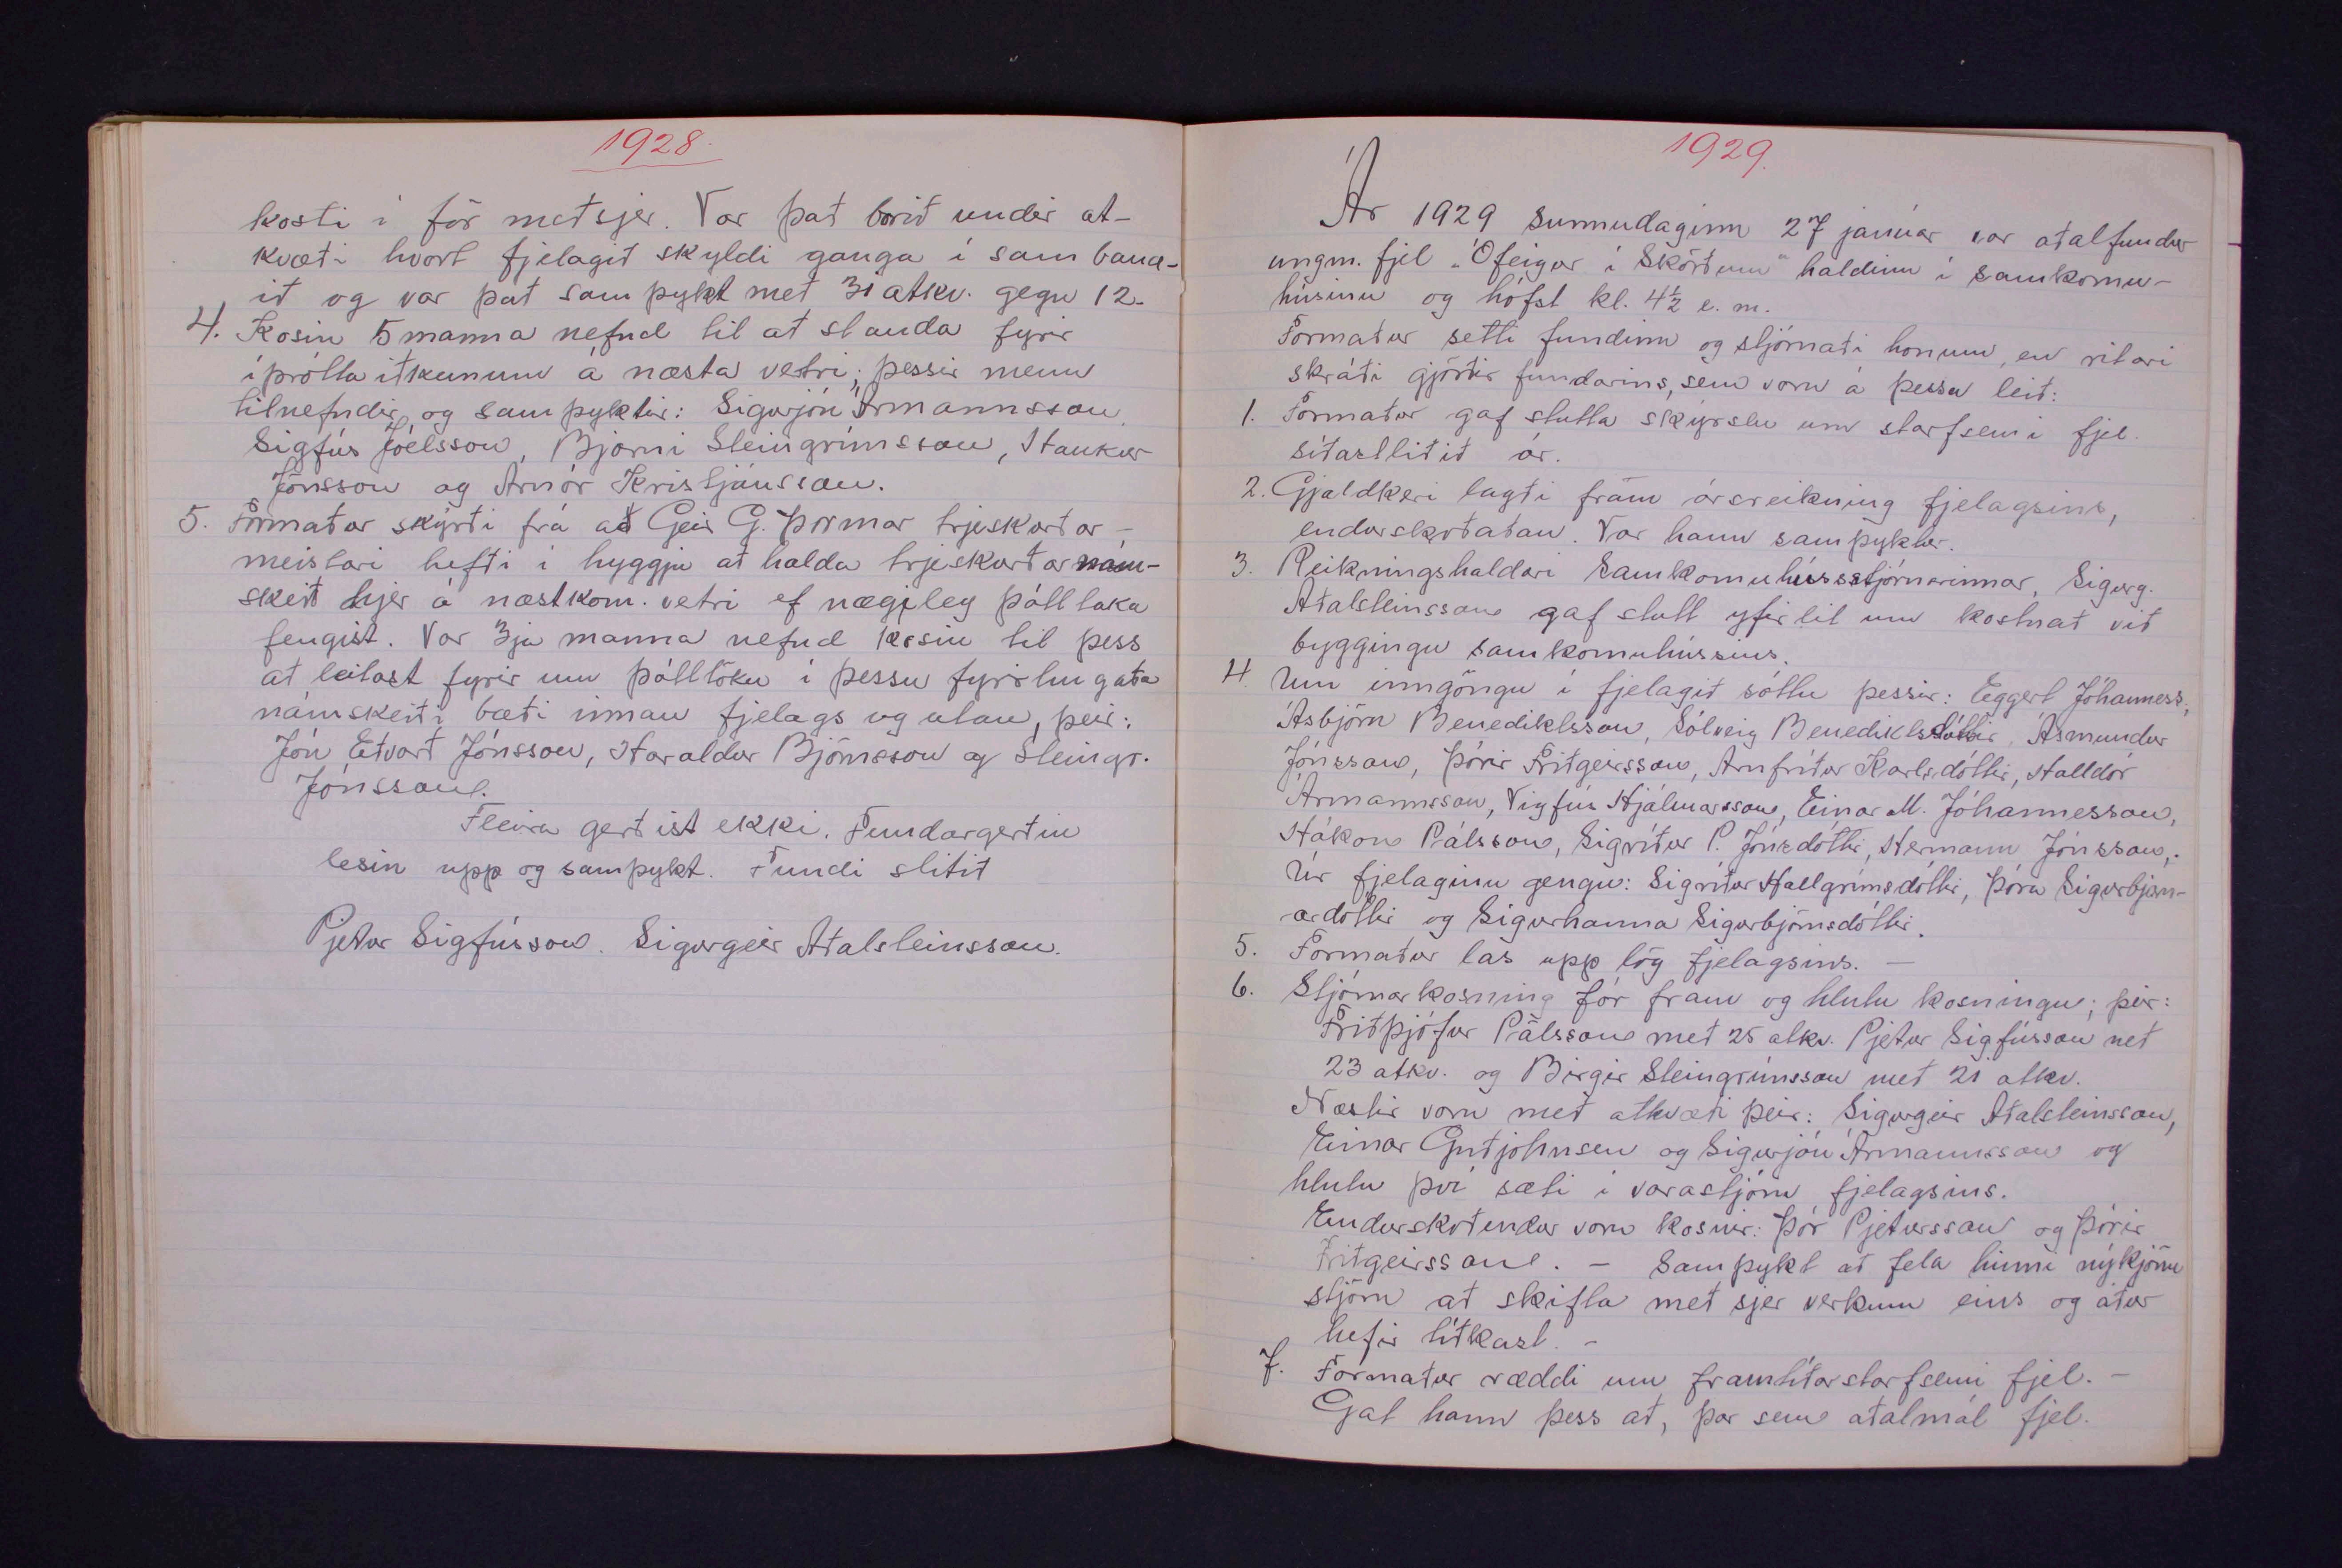 1928.
kosti í för með sjer. Var það borið undir at-
kvæði hvort fjelagið skyldi ganga í samband-
ið og var það samþykt með 31 atkv. gegn 12.
4. Kosin 5 manna nefnd til að standa fyrir
íþróttaiðkunum á næsta vetri; þessir menn
tilnefndir og samþyktir: Sigurjón Ármannsson,
Sigfús Jóelsson, Bjarni Steingrímsson, Haukur
Jónsson og Arnór Kristjánsson.
5. Formaður skýrði frá að Geir G. Þormar trjeskurðar-
meistari hefði í hyggju að halda trjeskurðarnám-
skeið hjer á næstkom. vetri ef nægileg þátttaka
fengist. Var 3ja manna nefnd kosin til þess
að leitast fyrir um þátttöku í þessu fyrirhugaða
námskeiði bæði innan fjelags og utan, þeir:
Jón Eðvarð Jónsson, Haraldur Björnsson og Steingr.
Jónsson.
Fleira gerðist ekki. Fundargerðin
lesin upp og samþykt. Fundi slitið
Pjetur Sigfússon. Sigurgeir Aðalsteinsson.
1929.
Ár 1929 sunnudaginn 27 janúar var aðalfundur
ungm. fjel „Ófeigur í Skörðum" haldinn í samkomu-
húsinu og hófst kl. 4½ e. m.
Formaður setti fundinn og stjórnaði honum, en ritari
skráði gjörðir fundarins, sem voru á þessa leið:
1. Formaður gaf stutta skýrslu um starfsemi fjel.
síðastliðið ár.
2. Gjaldkeri lagði fram ársreikning fjelagsins,
endurskoðaðan. Var hann samþyktur.
3. Reikningshaldari Samkomuhússstjórnarinnar, Sigurg.
Aðalsteinsson gaf stutt yfirlit um kostnað við
byggingu samkomuhússins.
4. Um inngöngu í fjelagið sóttu þessir: Eggert Jóhanness.,
Ásbjörn Benediktsson, Sólveig Benediktsdóttir, Ásmundur
Jónsson, Þórir Friðgeirsson, Arnfríður Karlsdóttir, Halldór
Ármannsson, Vigfús Hjálmarsson, Einar M. Jóhannesson,
Hákon Pálsson, Sigríður P. Jónsdóttir, Hermann Jónsson,.
Úr fjelaginu gengu: Sigríður Hallgrímsdóttir, Þóra Sigurbjarn-
ardóttir og Sigurhanna Sigurbjörnsdóttir.
5. Formaður las upp lög fjelagsins. —
6. Stjórnarkosning fór fram og hlutu kosningu; þeir:
Friðþjófur Pálsson með 25 atkv. Pjetur Sigfússon með
23 atkv. og Birgir Steingrímsson með 21 atkv.
Næstir voru með atkvæði þeir: Sigurgeir Aðalsteinsson,
Einar Guðjohnsen og Sigurjón Ármannsson og
hlutu því sæti í varastjórn fjelagsins.
Endurskoðendur voru kosnir: Þór Pjetursson og Þórir
Friðgeirsson. — Samþykt að fela hinni nýkjörnu
stjórn að skifta með sjer verkum eins og áður
hefir tíðkast. —
7. Formaður ræddi um framtíðarstarfsemi fjel. —
Gat hann þess að, þar sem aðalmál fjel.